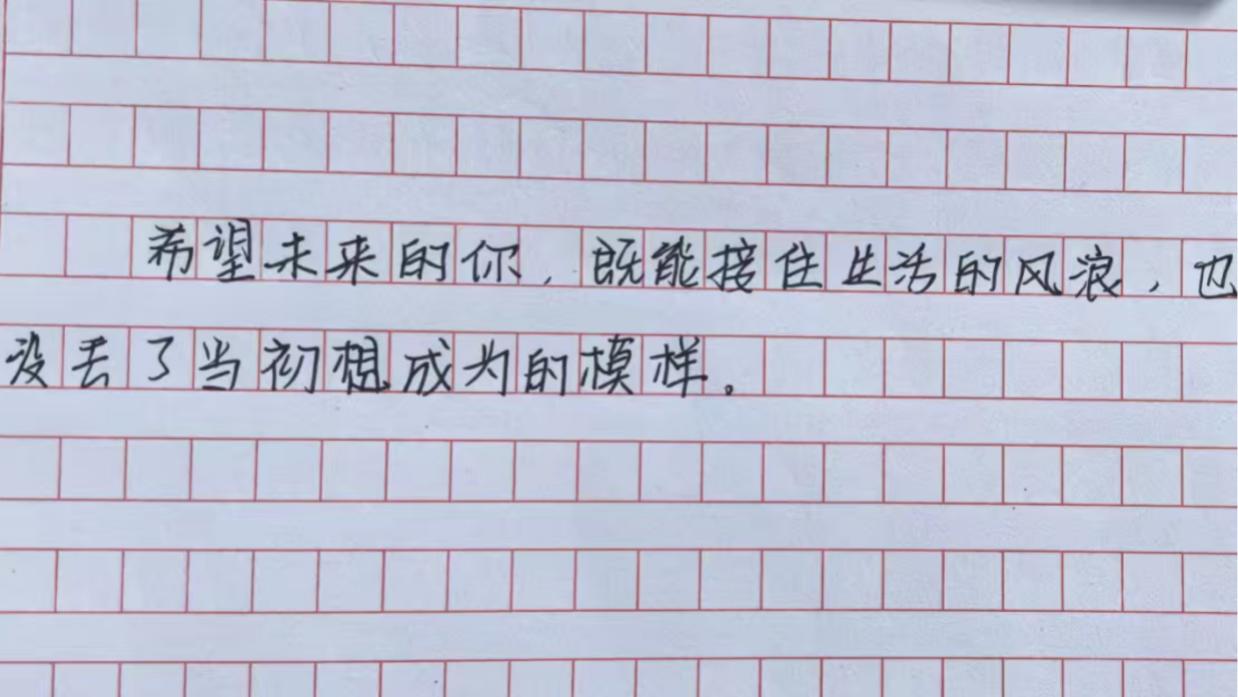 希望未来的你，既能接住生活的风浪，也
没丢了当初想成为的模样。